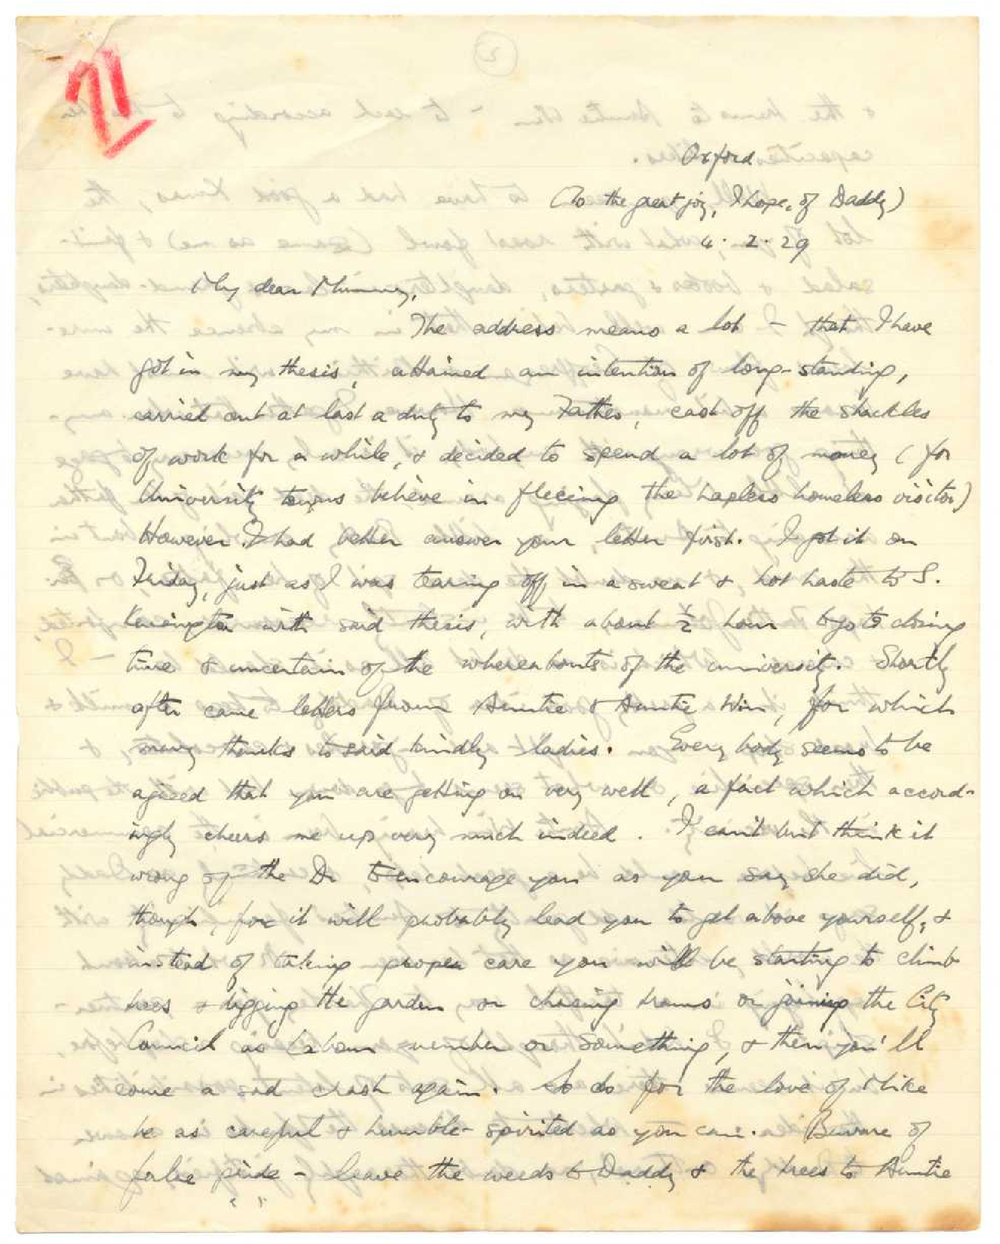 21
2
Oxford
(To the great joy, I hope, of Daddy)
4.2.29
My dear Mummy,
The address means a lot - that I have
got in my thesis, attained an intention of long-standing,
carried out at last a duty to my Father, cast off the shackles
of work for a while, & decided to spend a lot of money (for
University towns believe in fleecing the hapless homeless visitor)
However I had better answer your letter first. I got it on
Friday, just as I was tearing off in a sweat & hot haste to S.
Kensington with said thesis, with about ½ hour to go to closing
time & uncertain of the whereabouts of the university. Shortly
after came letters from Auntie & Auntie Win, for which
many thanks to said kindly ladies. Every body seems to be
agreed that you are getting on very well, a fact which accord-
ingly cheers me up very much indeed. I can't but think it
wrong of the Dr to encourage you as you say she did,
though, for it will probably lead you to get above yourself, &
instead of taking proper care you will be starting to climb
trees & digging the garden or chasing trams or joining the City
Council as Labour member or something, & then you'll
come a sad crash again. So do for the love of Mike
be as careful & humble-spirited as you can. Beware of
false pride - leave the weeds to Daddy & the trees to Auntie